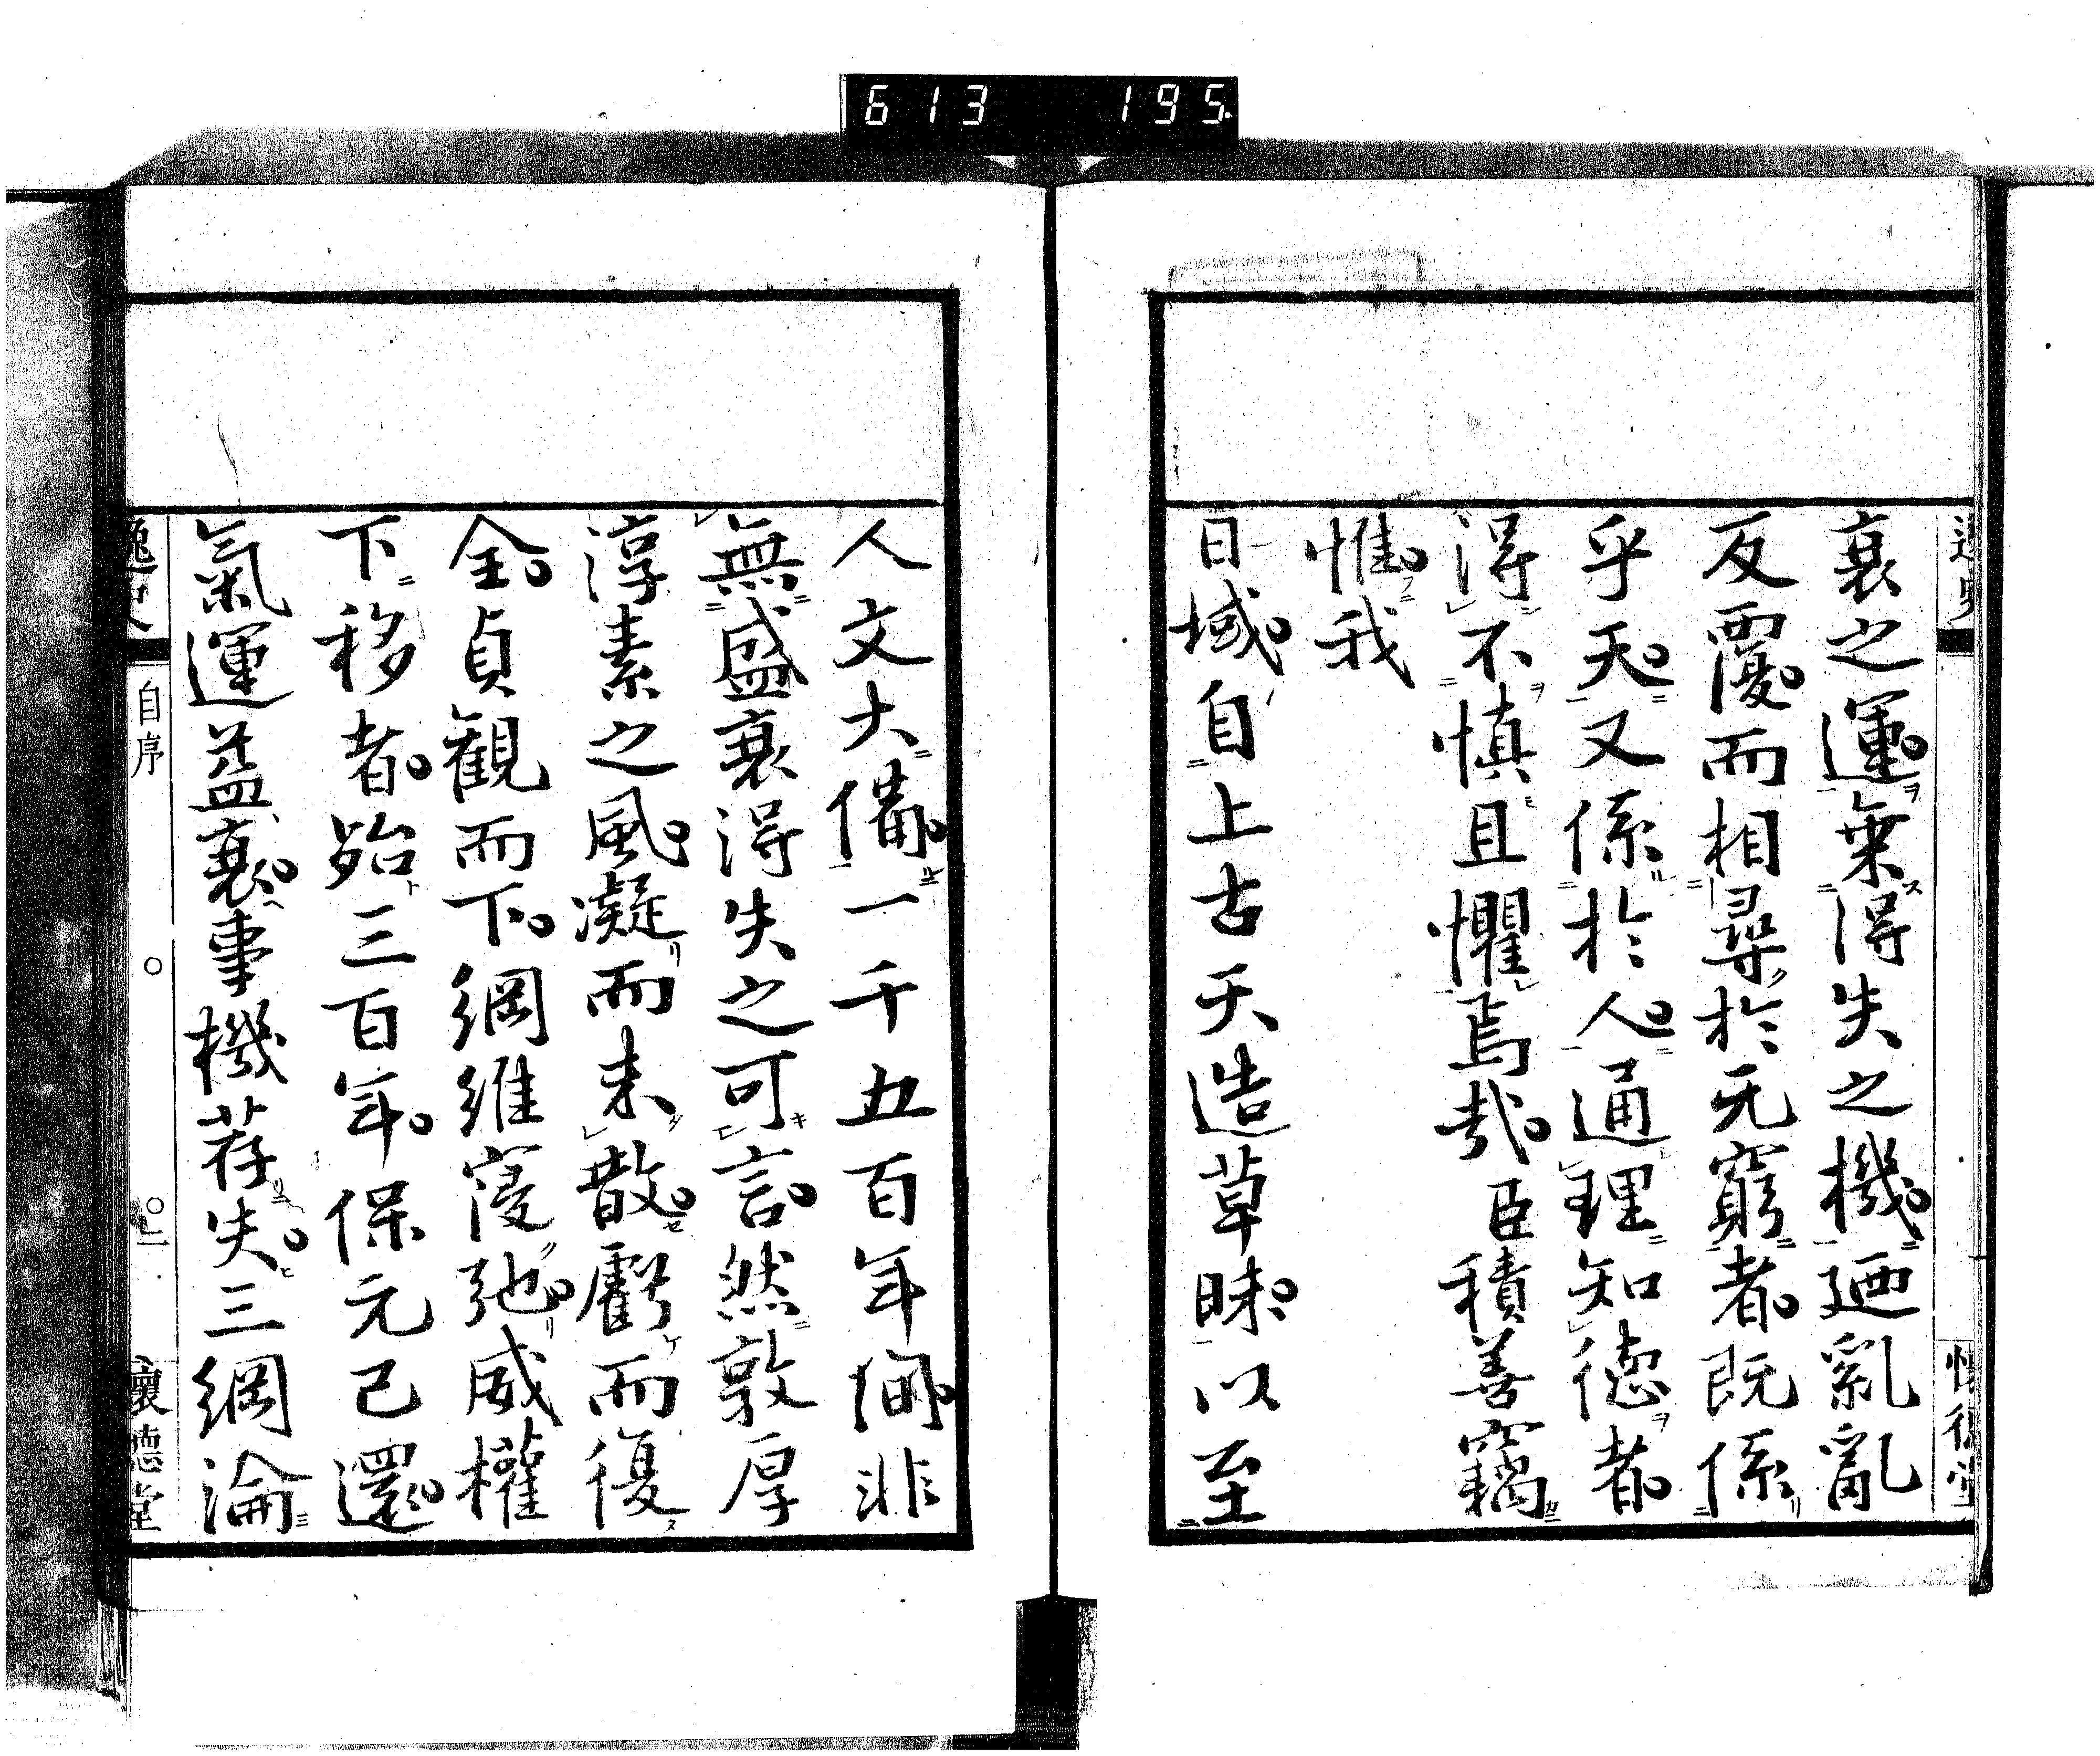 613 195
衰之運乗得失之機迺亂亂
反覆而相尋於无窮者既係
乎天又係於人通理知德者
得不慎且懼焉哉臣積善竊
惟我
日域自上古天造草昧以至
人文大備一千五百年間非
無盛衰得失之可言然敦厚
淳素之風凝而未散虧而復
全貞観而下綱維寖弛威權
下移者殆三百年保元已還
氣運益衰事機荐失三綱淪
逸史
自序
〇
〇二
懷德堂